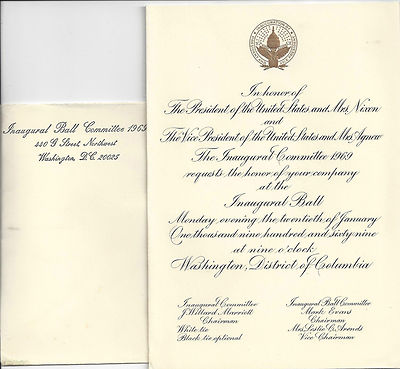 Inaugural Ball Committee 1969
440 G Street, Northwest
Washington, D.C. 20025
In honor of
The President of the United States and Mrs. Nixon
and
The Vice President of the United States and Mrs. Agnew
The Inaugural Committee 1969
requests the honor of your company
at the
Inaugural Ball
Monday evening the twentieth of January
One thousand and nine hundred and sixty nine
at nine o'clock
Washington, District of Columbia
Inaugural Committee
J. Willard Marriott
Chairman
White tie
Black tie optional
Inaugural Ball Committee
Mark Evans
Chairman
Mrs. Leslie C. Arends
Vice Chairman